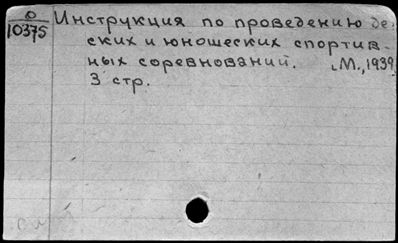 О
10375
Инструкция по проведению де
ских и юношеских спортив-
ных соревнований. М., 1939
3 стр.